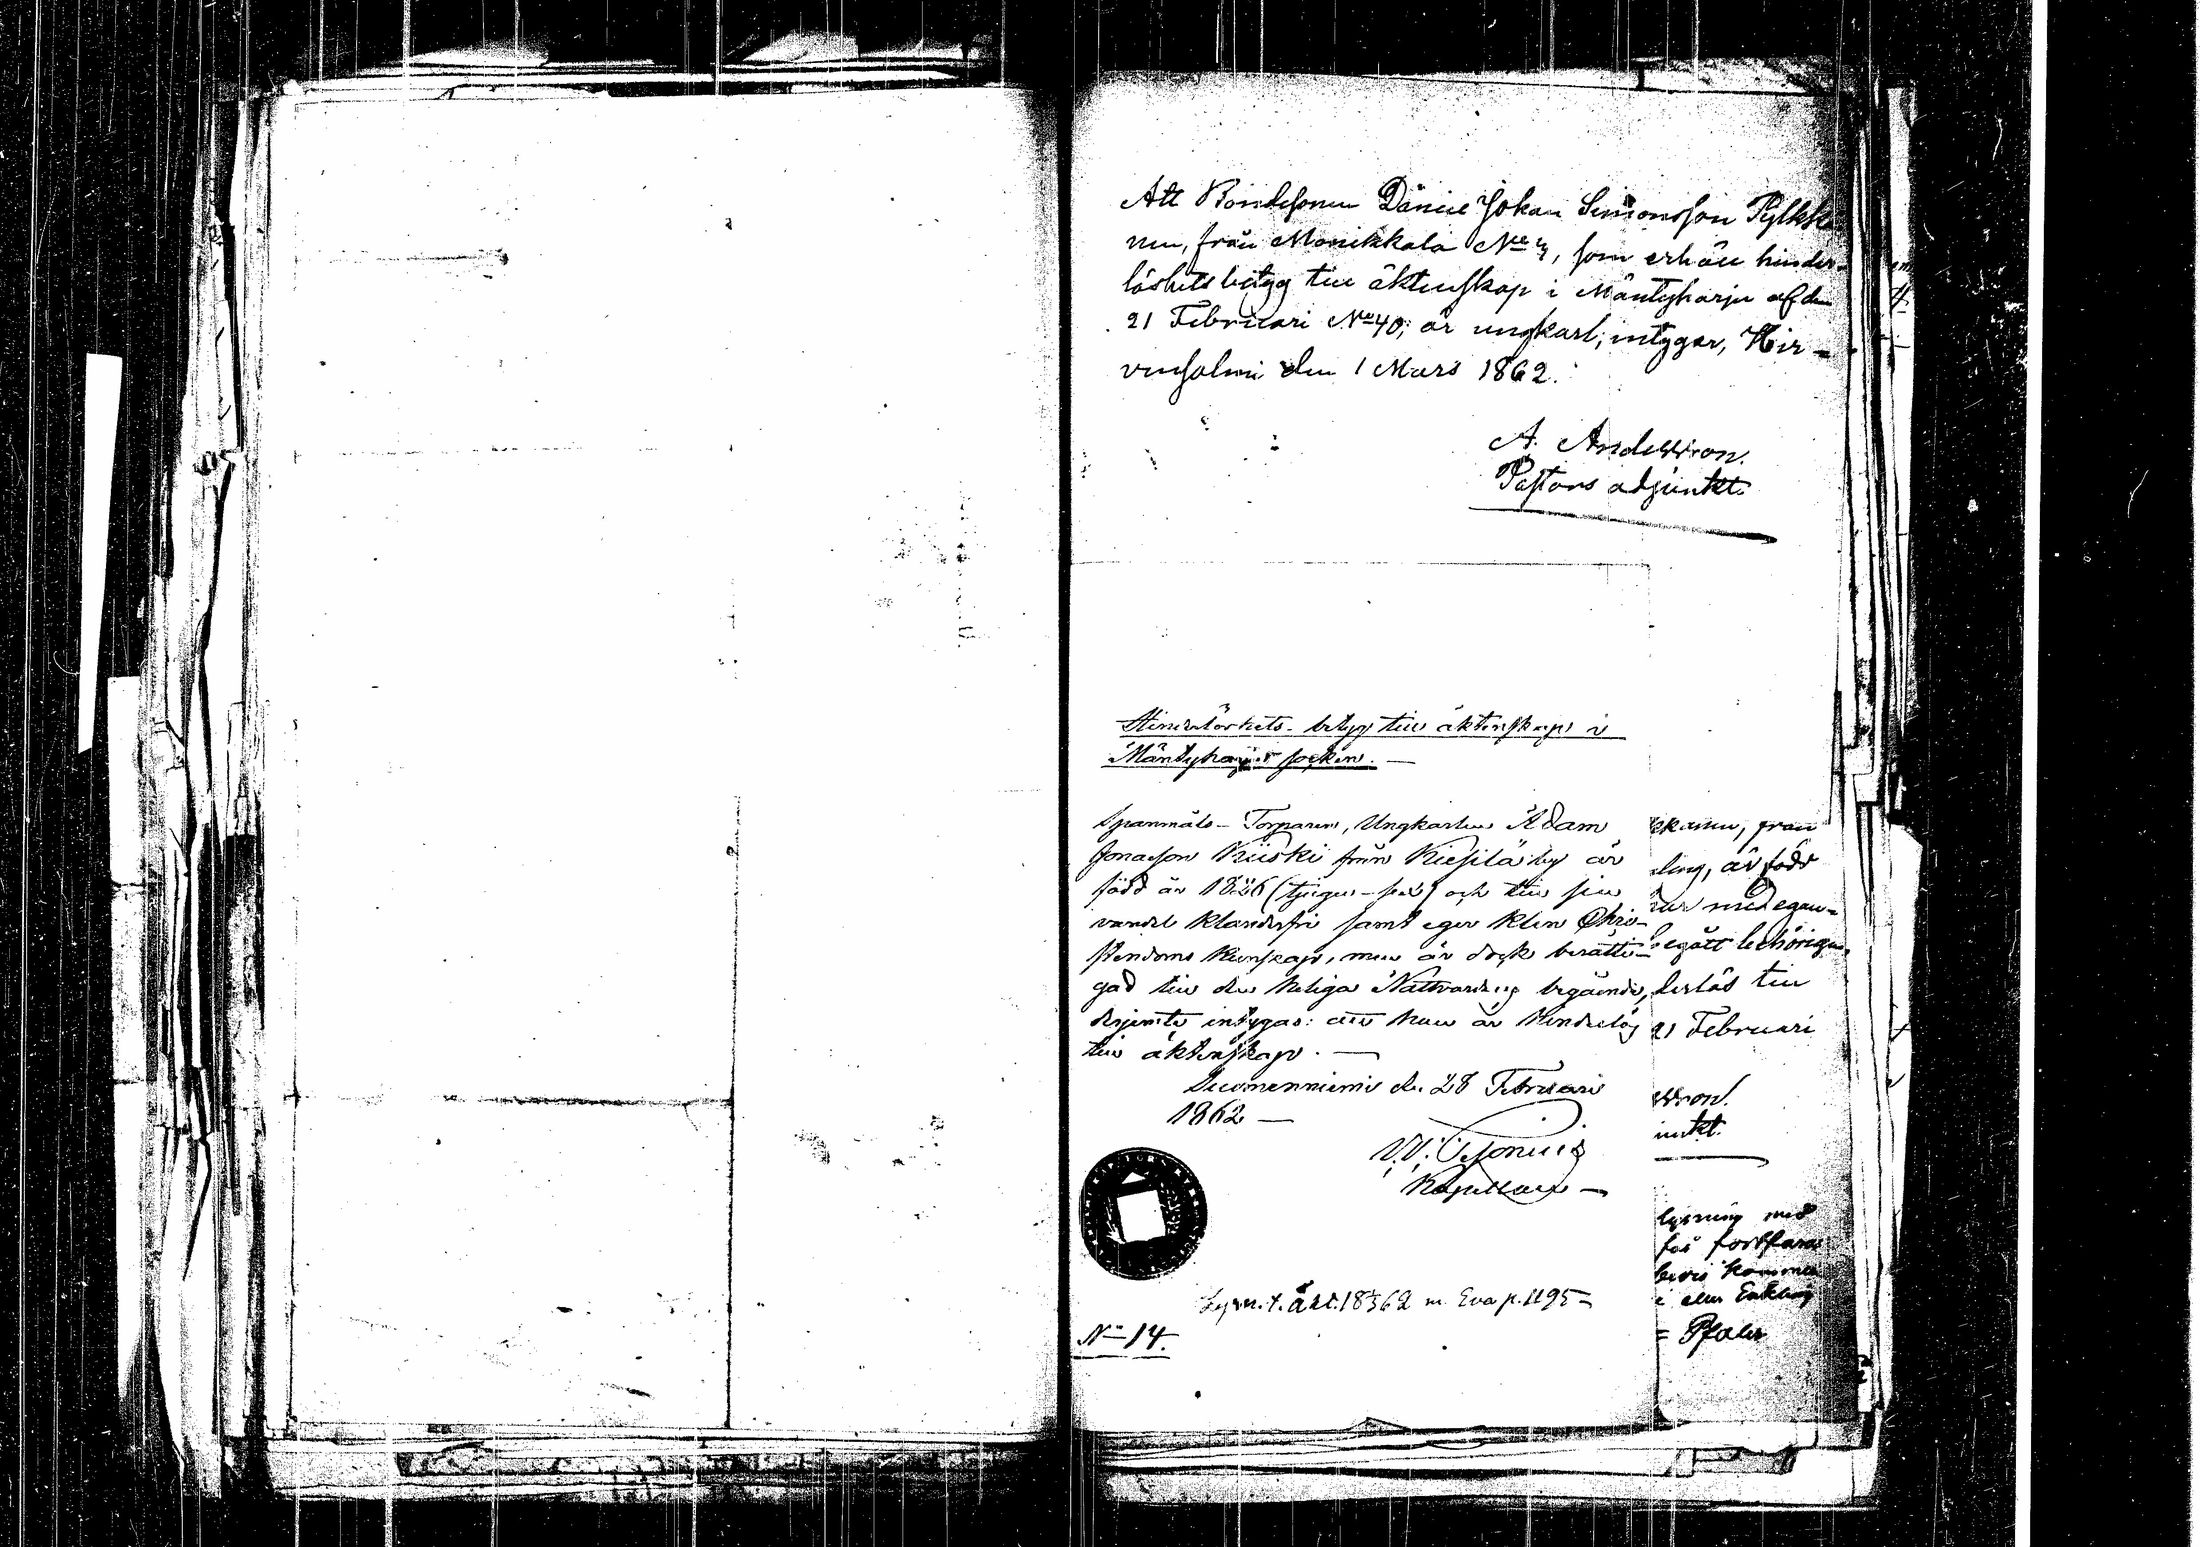 Att Bondesonen Daniel Johan Simonsson Pylkkä
nen, från Monikkala No 3, som erhåll hinder-
löshets betyg till äktenskap i Mäntyharju af den
21 Februari No 40, är ungkarl, intygar, Hir-
vensalmi den 1 Mars 1862.
A. Andersson.
Pastors adjunkt.
Hinderlöshets-betyg till äktenskap i
Mäntyharju socken.
Spanmåls-Torparen, Ungkarlen Adam
Jonasson Kiiski från Kiesilä by är
född år 1826 (tjugu-sex) och till sin
vandel klanderfri samt eger klen Chri-
stendoms kunskap, men är dock berätti-
gad till den heliga Nattvardens begående,
derjemte intygas: att han är hinderlös
till äktenskap.
Suomenniemi den 28 Februari
1862
Kapellan
Lysn. t. äkt. 18 62 m. Eva p. 1195
No 14.
kkanen, från
ling, är född
med egan-
begått behörigen,
derlös till
21 Februari
sson.
unkt.
lysning med
bevis komma
i eller Enkling